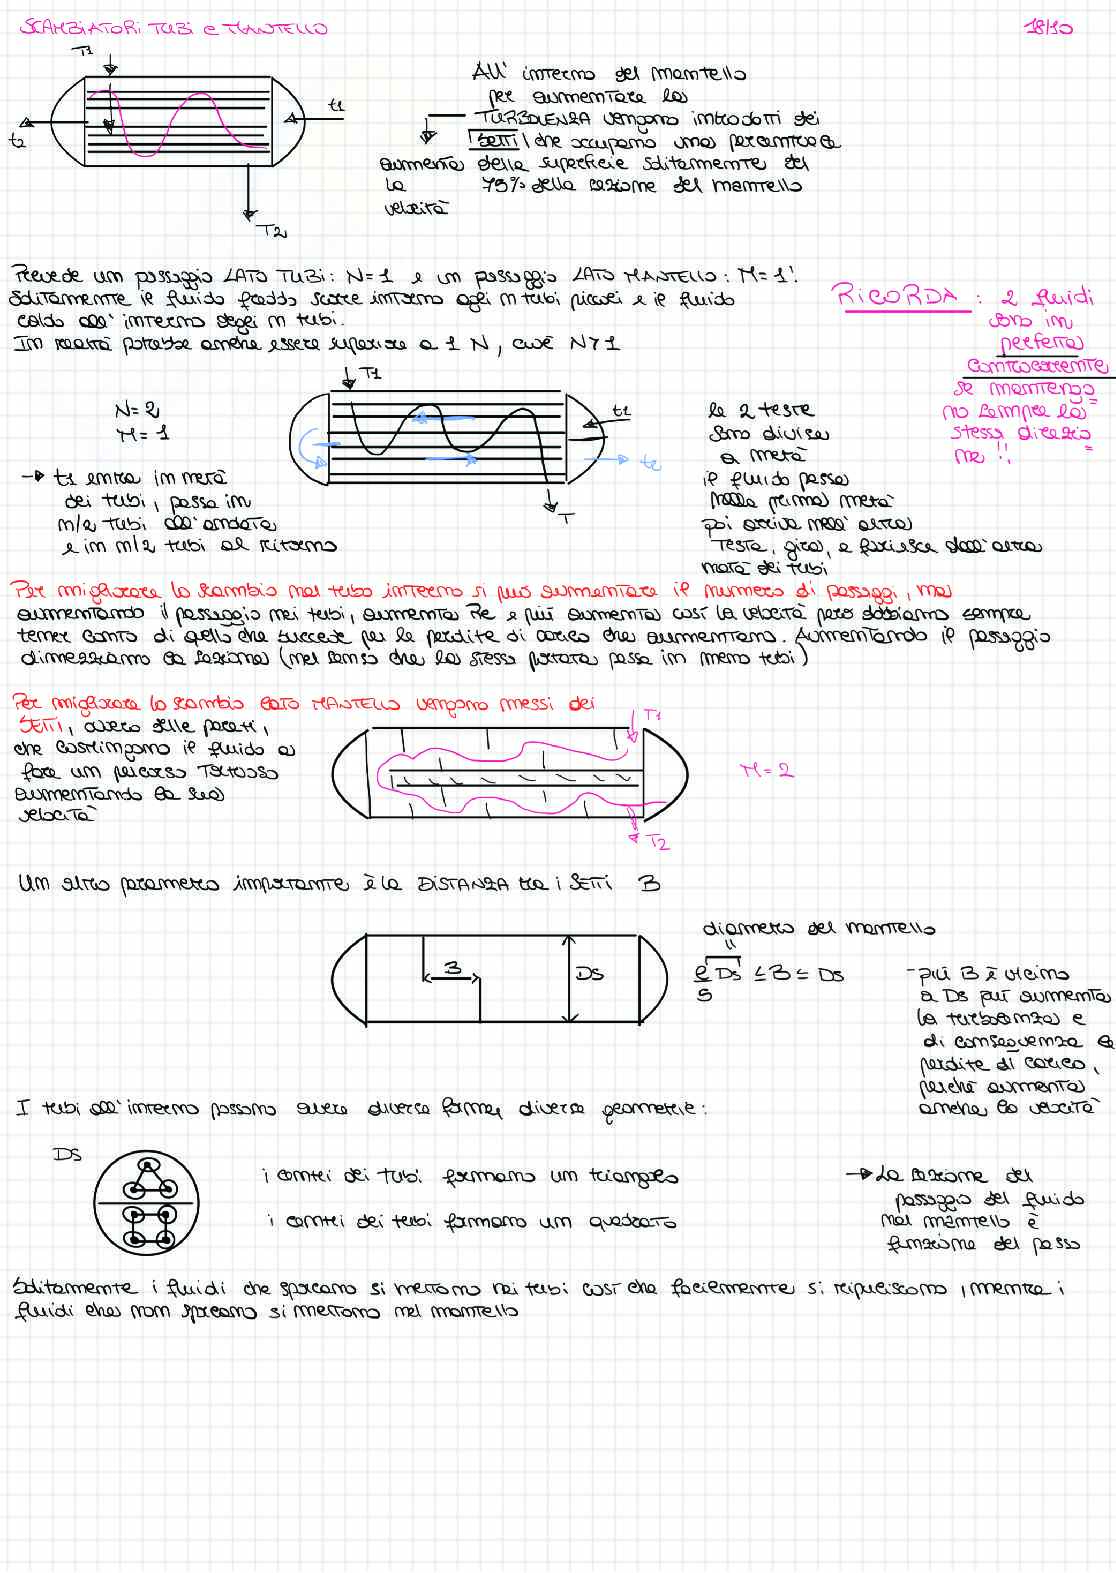 SCAMBIATORI TUBI e MANTELLO
18/10
T1
t1
t2
T2
All' interno del mantello
per aumentare la
TURBOLENZA vengono introdotti dei
SETTI che occupano una percentuale
della superficie solitamente del
75% della sezione del mantello
aumenta
la
velocità
Prevede un passaggio LATO TUBI: N=1 e un passaggio LATO MANTELLO: M=1!
Solitamente il fluido freddo scorre intorno agli n tubi piccoli e il fluido
caldo all' interno degli n tubi.
In realtà potrebbe anche essere superiore a 1 N, cioè N>1
RICORDA: 2 fluidi
sono in
perfetta
controcorrente
se mantengo
no sempre la
stessa direzio
ne !!
N=2
M=1
→ t1 entra in metà
dei tubi, passa in
n/2 tubi all'andata
e in n/2 tubi al ritorno
T1
t1
t2
T
le 2 teste
sono divise
a metà
il fluido passa
nella prima metà
poi arriva nell' altra
testa, gira, e fuoriesce dall'altra
metà dei tubi
Per migliorare lo scambio nel tubo interno si può aumentare il numero di passaggi, ma
aumentando il passaggio nei tubi, aumenta Re e più aumenta così la velocità però dobbiamo sempre
tener conto di quello che succede per le perdite di carico che aumentano. Aumentando il passaggio
dimezziamo la sezione (nel senso che la stessa portata passa in meno tubi)
Per migliorare lo scambio LATO MANTELLO vengono messi dei
SETTI, ovvero delle pareti,
che costringono il fluido a
fare un percorso tortuoso
aumentando la sua
velocità
T1
M=2
T2
Un altro parametro importante è la DISTANZA tra i SETTI B
B
DS
diametro del mantello
"
DS ≤ B ≤ DS
5
- più B è vicino
a DS più aumenta
la turbolenza e
di conseguenza le
perdite di carico,
perché aumenta
anche la velocità
I tubi all'interno possono avere diverse forme, diverse geometrie:
DS
i centri dei tubi formano un triangolo
i centri dei tubi formano un quadrato
→ La sezione del
passaggio del fluido
nel mantello è
funzione del passo
Solitamente i fluidi che sporcano si mettono nei tubi così che facilmente si ripuliscono, mentre i
fluidi che non sporcano si mettono nel mantello